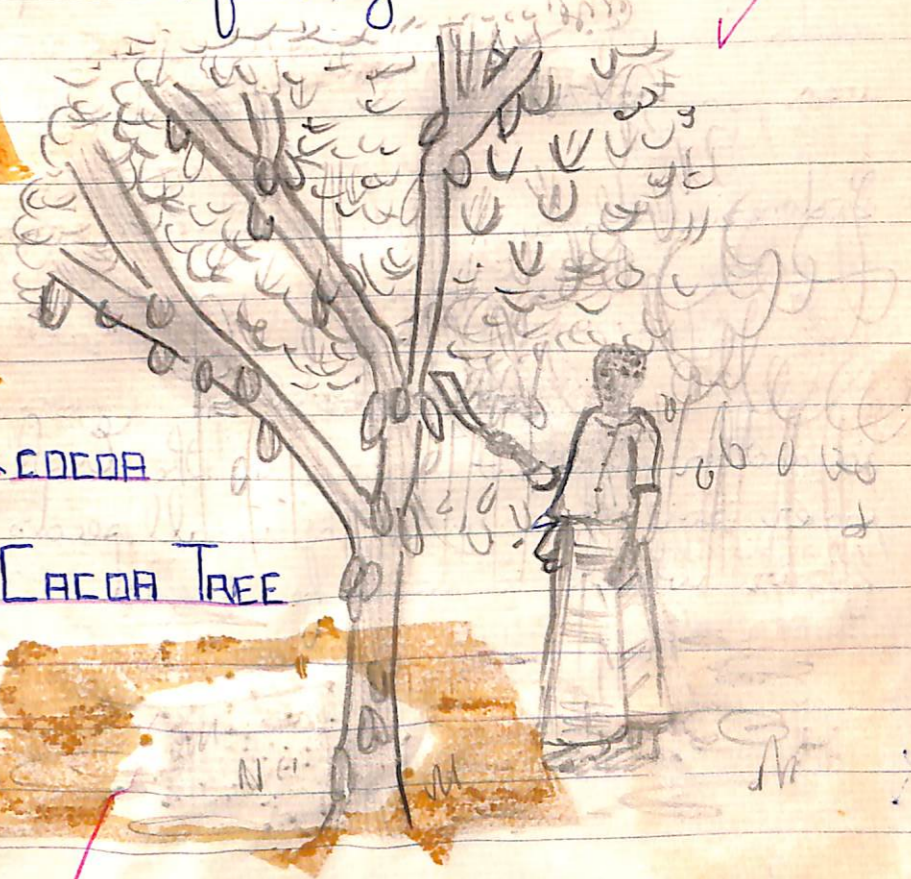 COCOA
CACOA TREE